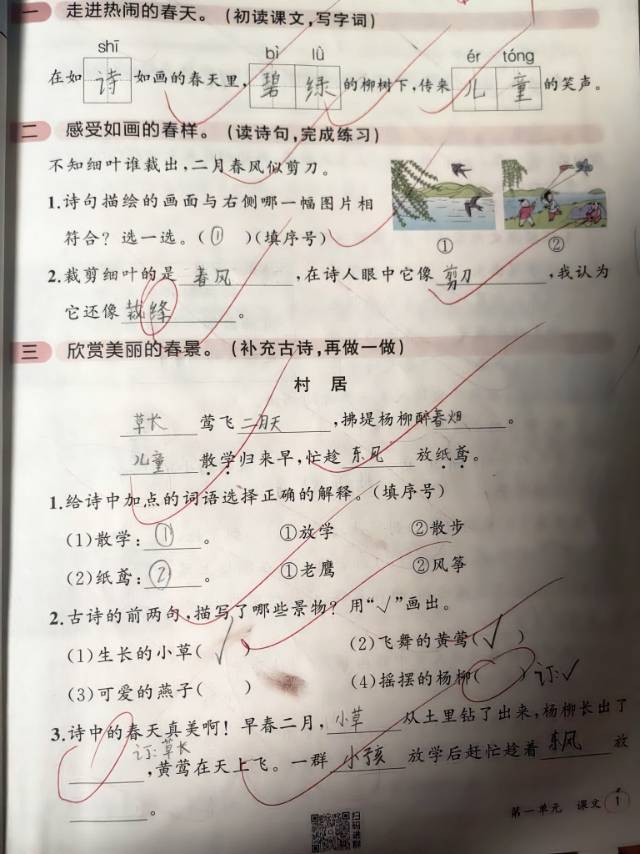 一 走进热闹的春天。(初读课文,写字词)
shī bì lǜ ér tóng
在如诗如画的春天里,碧绿的柳树下,传来儿童的笑声。
二 感受如画的春样。(读诗句,完成练习)
不知细叶谁裁出,二月春风似剪刀。
1.诗句描绘的画面与右侧哪一幅图片相
符合?选一选。(①)(填序号)
① ②
2.裁剪细叶的是春风,在诗人眼中它像剪刀,我认为
它还像裁缝。
三 欣赏美丽的春景。(补充古诗,再做一做)
村居
草长莺飞二月天,拂堤杨柳醉春烟。
儿童散学归来早,忙趁东风放纸鸢。
1.给诗中加点的词语选择正确的解释。(填序号)
(1)散学:①。 ①放学 ②散步
(2)纸鸢:②。 ①老鹰 ②风筝
2.古诗的前两句,描写了哪些景物?用“√”画出。
(1)生长的小草(√) (2)飞舞的黄莺(√)
(3)可爱的燕子( ) (4)摇摆的杨柳( ) 订:√
3.诗中的春天真美啊!早春二月,小草从土里钻了出来,杨柳长出了
订:草长
,黄莺在天上飞。一群小孩放学后赶忙趁着东风放
。
扫码进群
第一单元 课文 1